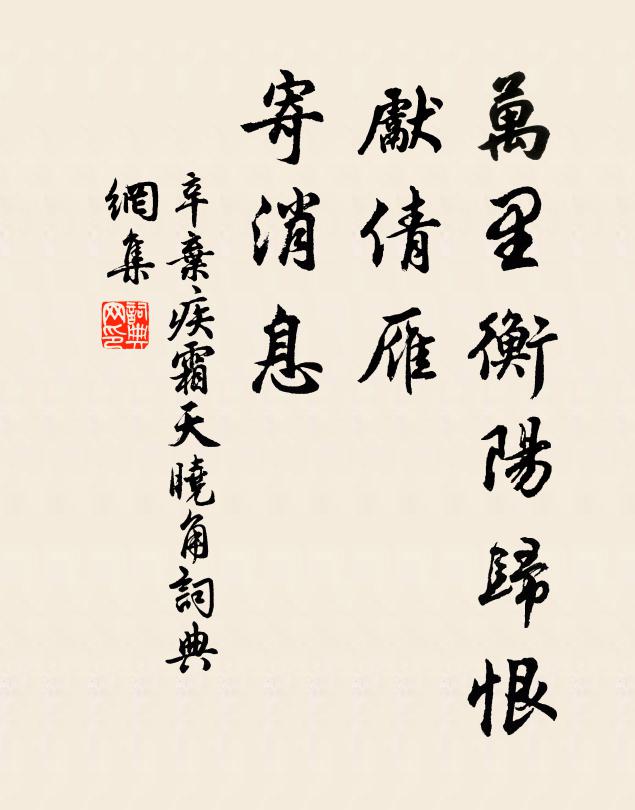 萬里衡陽歸恨
獻倩雁
寄消息
辛棄疾霜天曉角詞典
網集
詞典網印